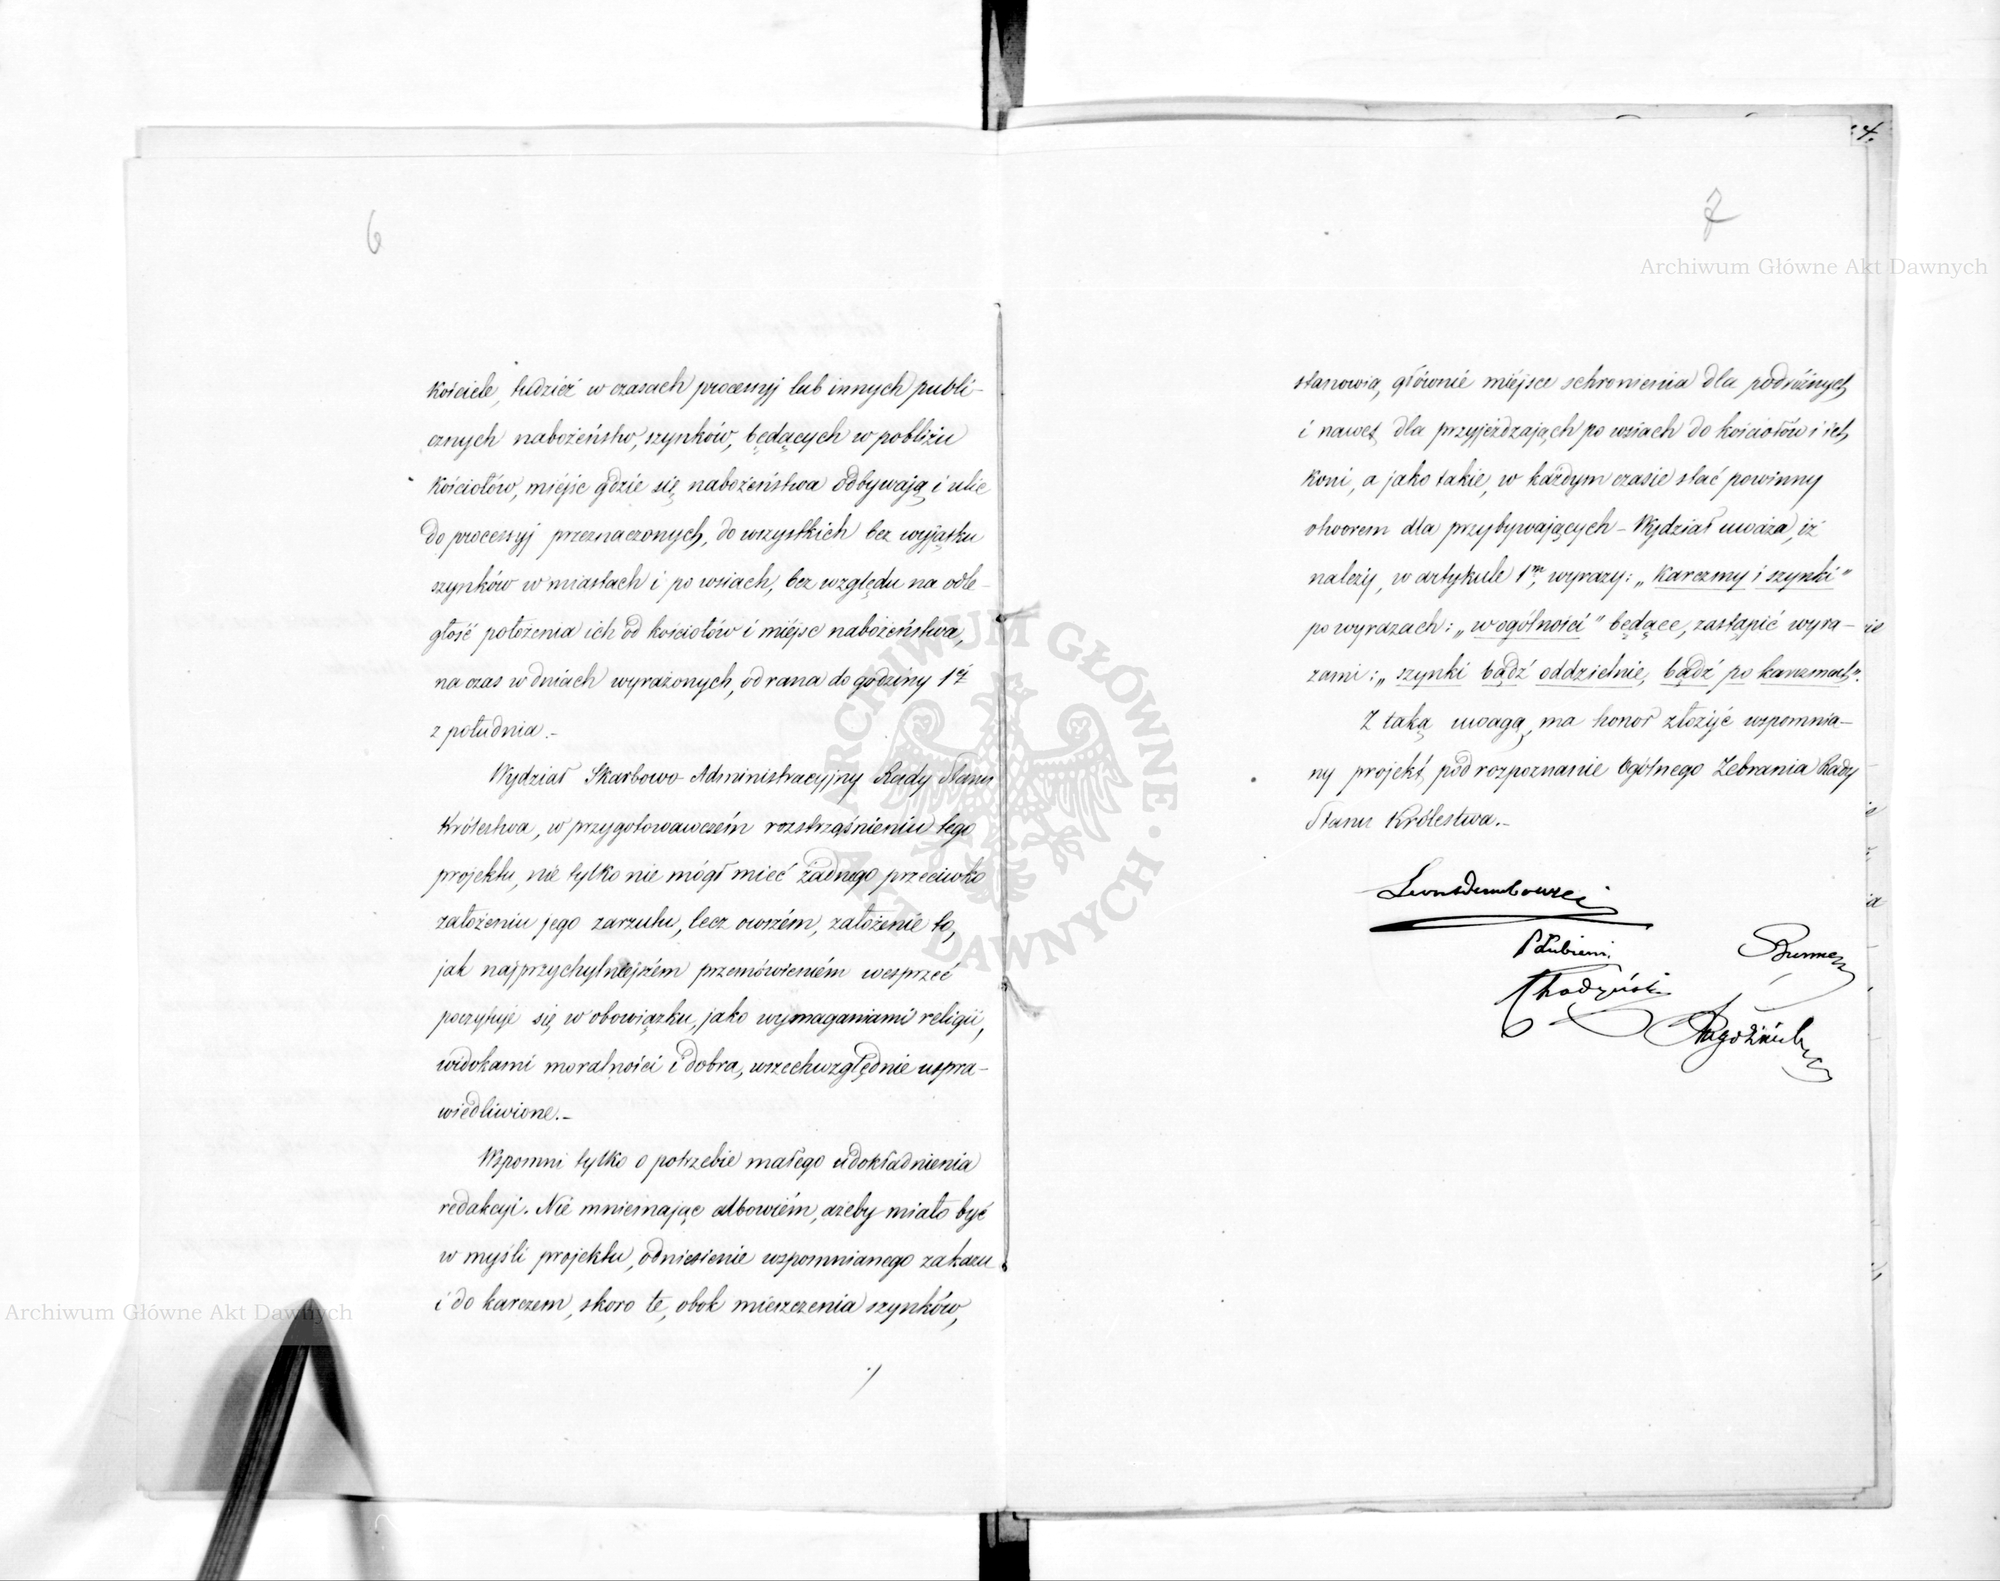 6
kościele, tudzież w czasach processyj lub innych publi-
cznych nabożeństw, szynków, będących w pobliżu
kościołów, miejsc gdzie się nabożeństwa odbywają i ulic
do processyj przeznaczonych, do wszystkich bez wyjątku
szynków w miastach i po wsiach, bez względu na odle-
głość położenia ich od kościołów i miejsc nabożeństwa,
na czas w dniach wyrażonych, od rana do godziny 1éj
z południa.-
Wydział Skarbowo-Administracyjny Rady Stanu
Królestwa, w przygotowawczém rozstrząśnieniu tego
projektu, nie tylko nie mógł mieć żadnego przeciwko
założeniu jego zarzutu, lecz owszém, założenie to,
jak najprzychylniejszém przemówieniém wesprzeć
poczytuje się w obowiązku, jako wymaganiami religii,
widokami moralności i dobra, wszechwzględnie uspra-
wiedliwione.-
Wspomni tylko o potrzebie małego udokładnienia
redakcyi. Nie mniemając albowiém, ażeby miało być
w myśli projektu, odniesienie wspomnianego zakazu
i do karczem, skoro te, obok mieszczenia szynków,
4.
7
stanowią, głównie miejsce schronienia dla podróżnych
i nawet dla przyjeżdzających po wsiach do kościołów i ich
koni, a jako takie, w każdym czasie stać powinny
otworem dla przybywających - Wydział uważa, iż
należy, w artykule 1m, wyrazy: „karczmy i szynki"
po wyrazach: „w ogólności" będące, zastąpić wyra-
zami: „szynki bądź oddzielnie, bądź po karczmach".
Z taką uwagą, ma honor złożyć wspomnia-
ny projekt, pod rozpoznanie Ogólnego Zebrania Rady
Stanu Królestwa.-
Leon Dembowski
P Łubieni
Archiwum Główne Akt Dawnych
Archiwum Główne Akt Dawnych
ARCHIWUM GŁÓWNE AKT DAWNYCH